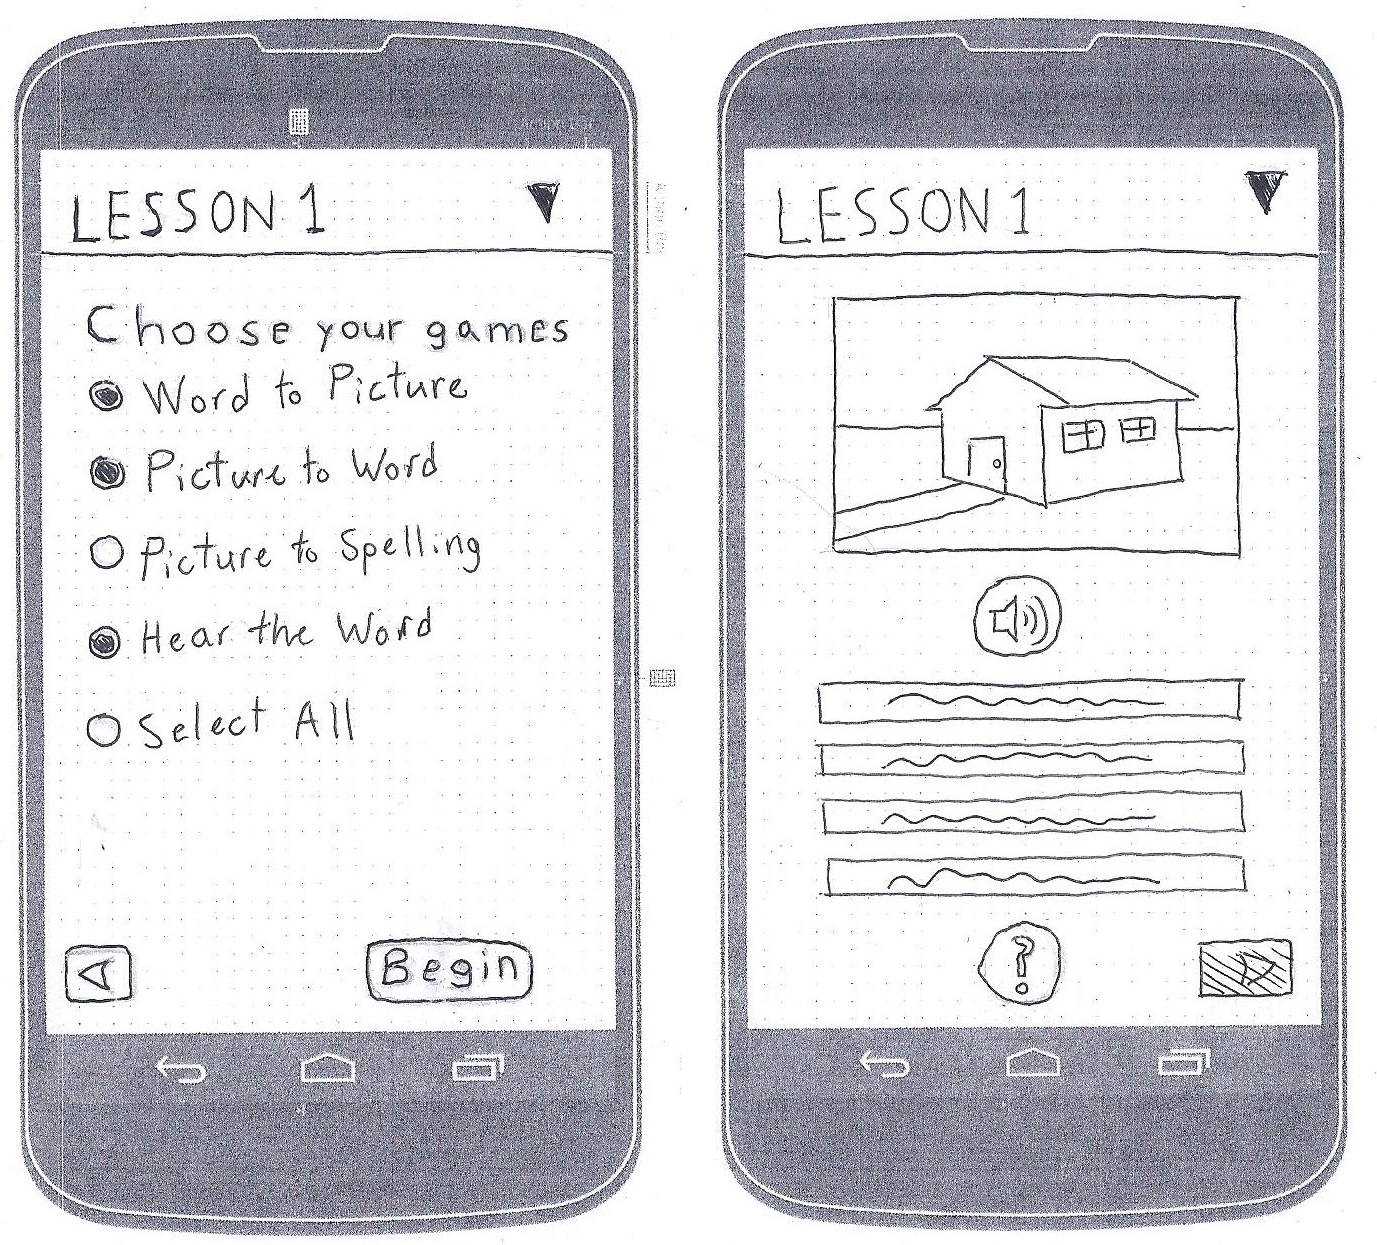 LESSON 1
Choose your games
Word to Picture
Picture to Word
Picture to Spelling
Hear the Word
Select All
Begin
LESSON 1
?